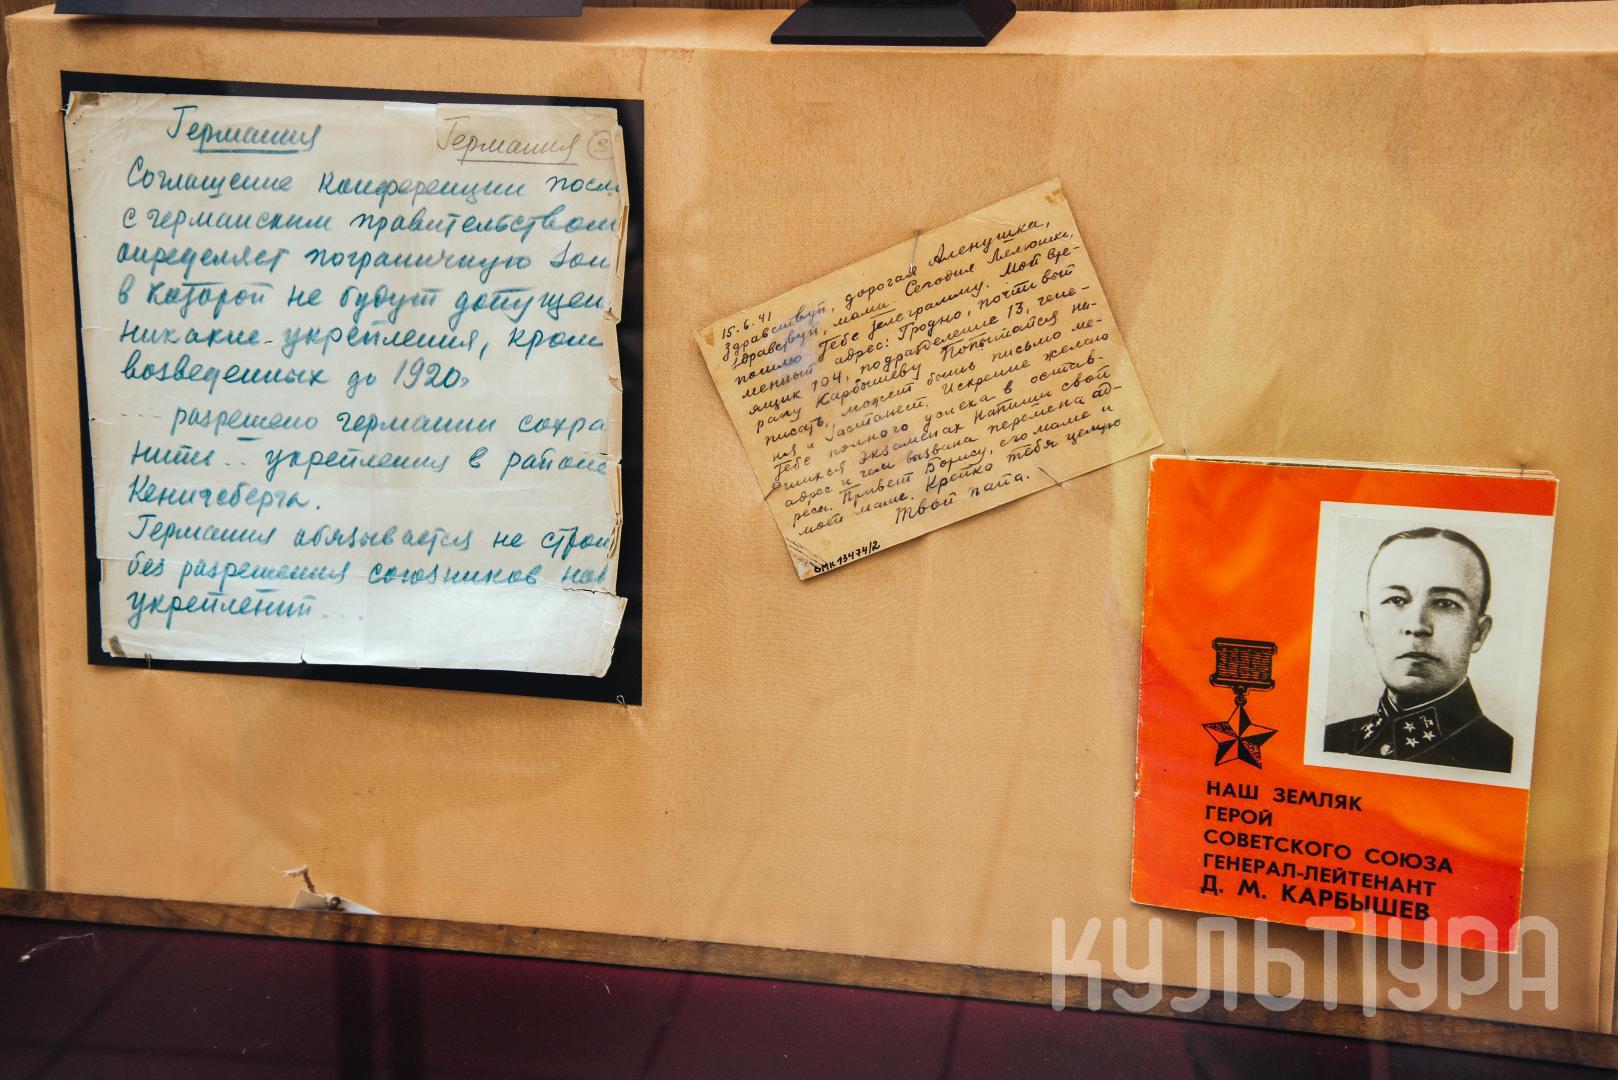 Германия
Германия
Соглашение конференции посл
с германским правительством
определяет пограничную зон
в которой не будут допущен
никакие укрепления, кроме
возведенных до 1920г
... разрешено германии сохра
нить .. укрепления в районе
Кенигсберга.
Германия обязывается не строи
без разрешения союзников нов
укреплений...
15.6.41
Здравствуй, дорогая Аленушка,
здравствуй, мама. Сегодня Лелюшке,
пошлю Тебе телеграмму. Мой вре-
менный адрес: Гродно, почтовый
ящик 104, подразделение 13, гене-
ралу Карбышеву. Попытайся на-
писать, может быть письмо ме-
ня и застанет. Искренне желаю
Тебе полного успеха в остав-
шихся экзаменах. Напиши свой
адрес и чем вызвана перемена ад-
реса. Привет Борису, его маме и
моей маме. Крепко тебя целую
Твой папа.
ОМК 13474/2
НАШ ЗЕМЛЯК
ГЕРОЙ
СОВЕТСКОГО СОЮЗА
ГЕНЕРАЛ-ЛЕЙТЕНАНТ
Д. М. КАРБЫШЕВ
КУЛЬТУРА